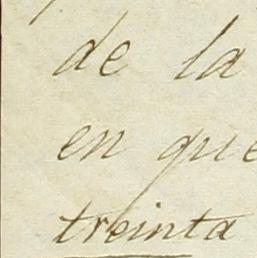 de la
en que
treinta